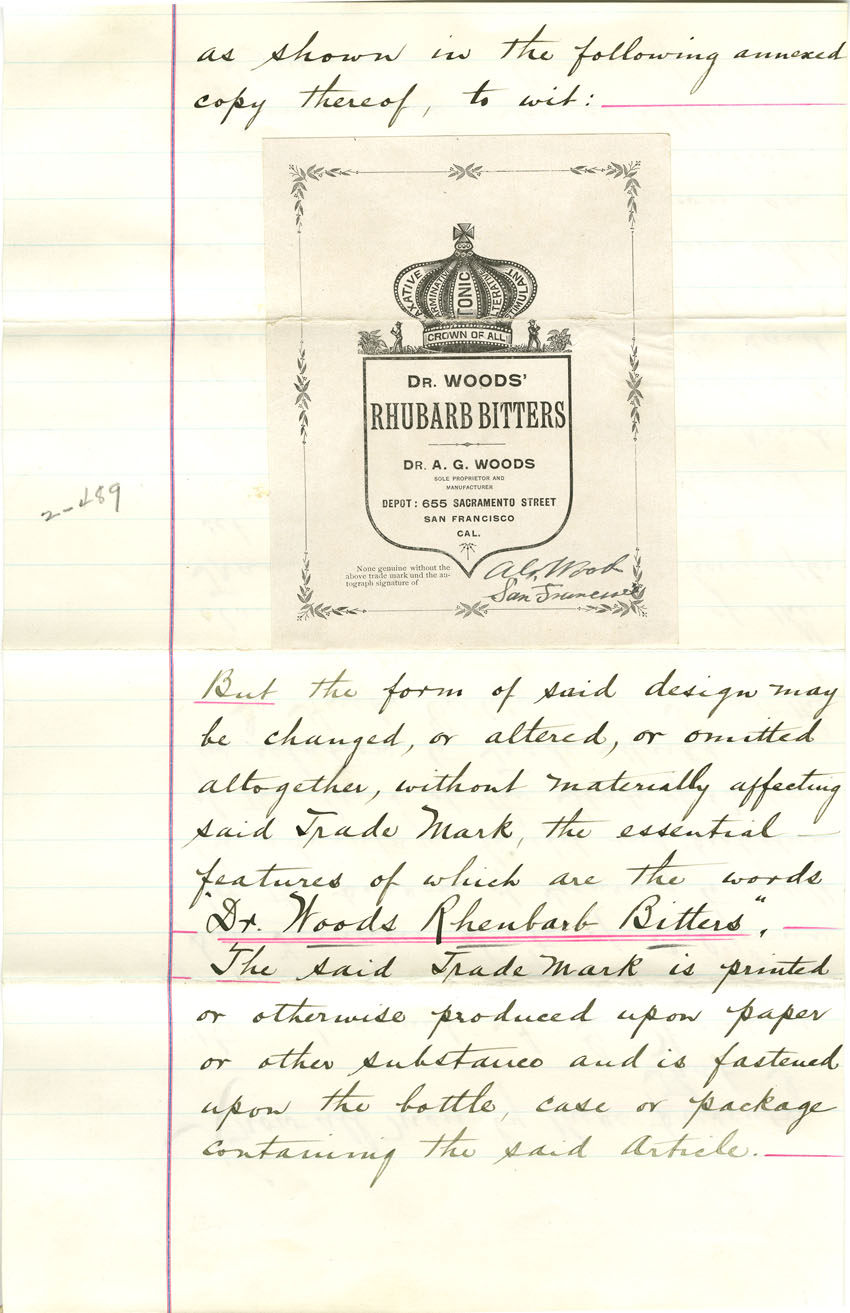 as shown in the following annexed
copy thereof, to wit:
AXATIVE
RMINATIV
TONIC
LTERATIV
STIMULANT
CROWN OF ALL
DR. WOODS'
RHUBARB BITTERS
DR. A. G. WOODS
SOLE PROPRIETOR AND
MANUFACTURER
DEPOT: 655 SACRAMENTO STREET
SAN FRANCISCO
CAL.
None genuine without the
above trade mark und the au-
tograph signature of
A. G. Woods
San Francisco
2-489
But the form of said design may
be changed, or altered, or omitted
altogether, without materially affecting
said Trade Mark, the essential
features of which are the words
"Dr. Woods Rheubarb Bitters".
The said Trade Mark is printed
or otherwise produced upon paper
or other substance and is fastened
upon the bottle, case or package
containing the said Article.